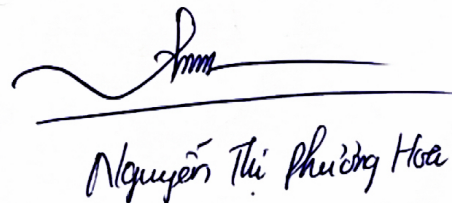 Nguyễn Thị Phương Hoa